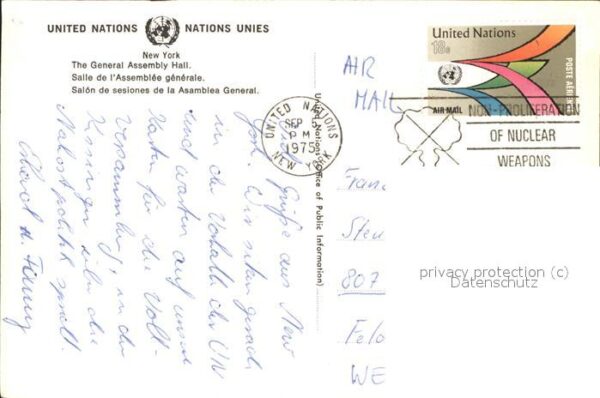 UNITED NATIONS NATIONS UNIES
New York
The General Assembly Hall.
Salle de l'Assemblée générale.
Salón de sesiones de la Asamblea General.
United Nations
18c
POSTE AÉRIENNE
AIR MAIL
UNITED NATIONS
SEP
PM
1975
NEW YORK
NON-PROLIFERATION
OF NUCLEAR
WEAPONS
United Nations (Office of Public Information)
AIR
MAIL
Grüße aus New
York. Wir sitzen gerade
in der Vorhalle der UN
und warten auf unsere
Karten für die Voll-
versammlung, in der
Kissinger über die
Nahostpolitik spricht.
807
WE
privacy protection (c)
Datenschutz